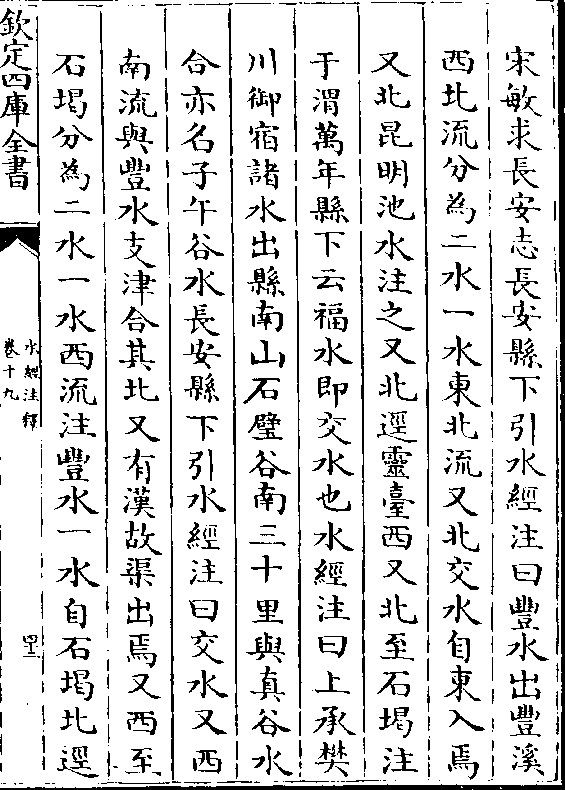 宋敏求長安志長安縣下引水經注曰豐水出豐溪
西北流分為二水一水東北流又北交水自東入焉
又北昆明池水注之又北逕靈臺西又北至石堨注
于渭萬年縣下云福水即交水也水經注曰上承樊
川御宿諸水出縣南山石壁谷南三十里與真谷水
合亦名子午谷水長安縣下引水經注曰交水又西
南流與豐水支津合其北又有漢故渠出焉又西至
石堨分為二水一水西流注豐水一水自石堨北逕
欽定四庫全書
水經注釋
卷十九